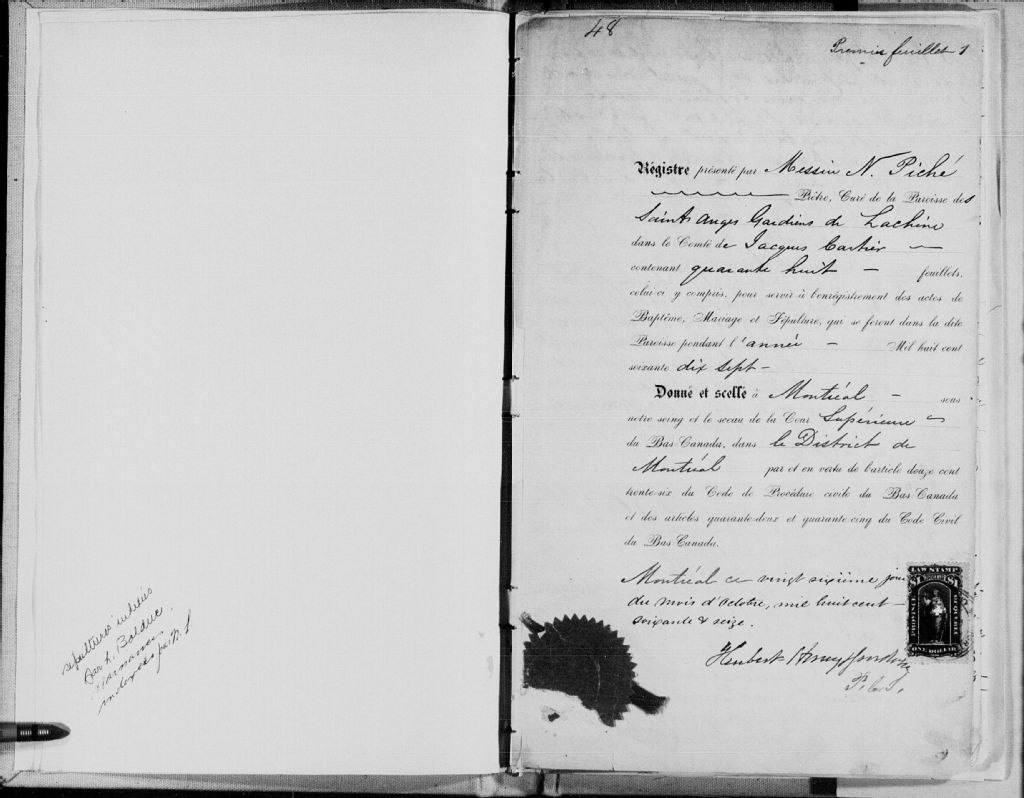 48
Premier feuillet 1
Régistre présenté par Messire N. Piché
Prêtre, Curé de la Paroisse des
Saints Anges Gardiens de Lachine
dans le Comté de Jacques Cartier —
contenant quarante huit — feuillets,
celui-ci y compris, pour servir à l'enrégistrement des actes de
Baptême, Mariage et Sépulture, qui se feront dans la dite
Paroisse pendant l'année — Mil huit cent
soixante dix sept —
Donné et scellé à Montréal — sous
notre seing et le sceau de la Cour Supérieure
du Bas-Canada, dans le District de
Montréal par et en vertu de l'article douze cent
trente-six du Code de Procédure civile du Bas-Canada
et des articles quarante-deux et quarante-cinq du Code Civil
du Bas-Canada.
Montréal ce vingt sixième jour
du mois d'Octobre, mil huit cent —
soixante & seize.
P. C. S.
LAW STAMP
$1 $1
PROVINCE OF QUEBEC
ONE DOLLAR
sépultures
par L. Bolduc
mariages